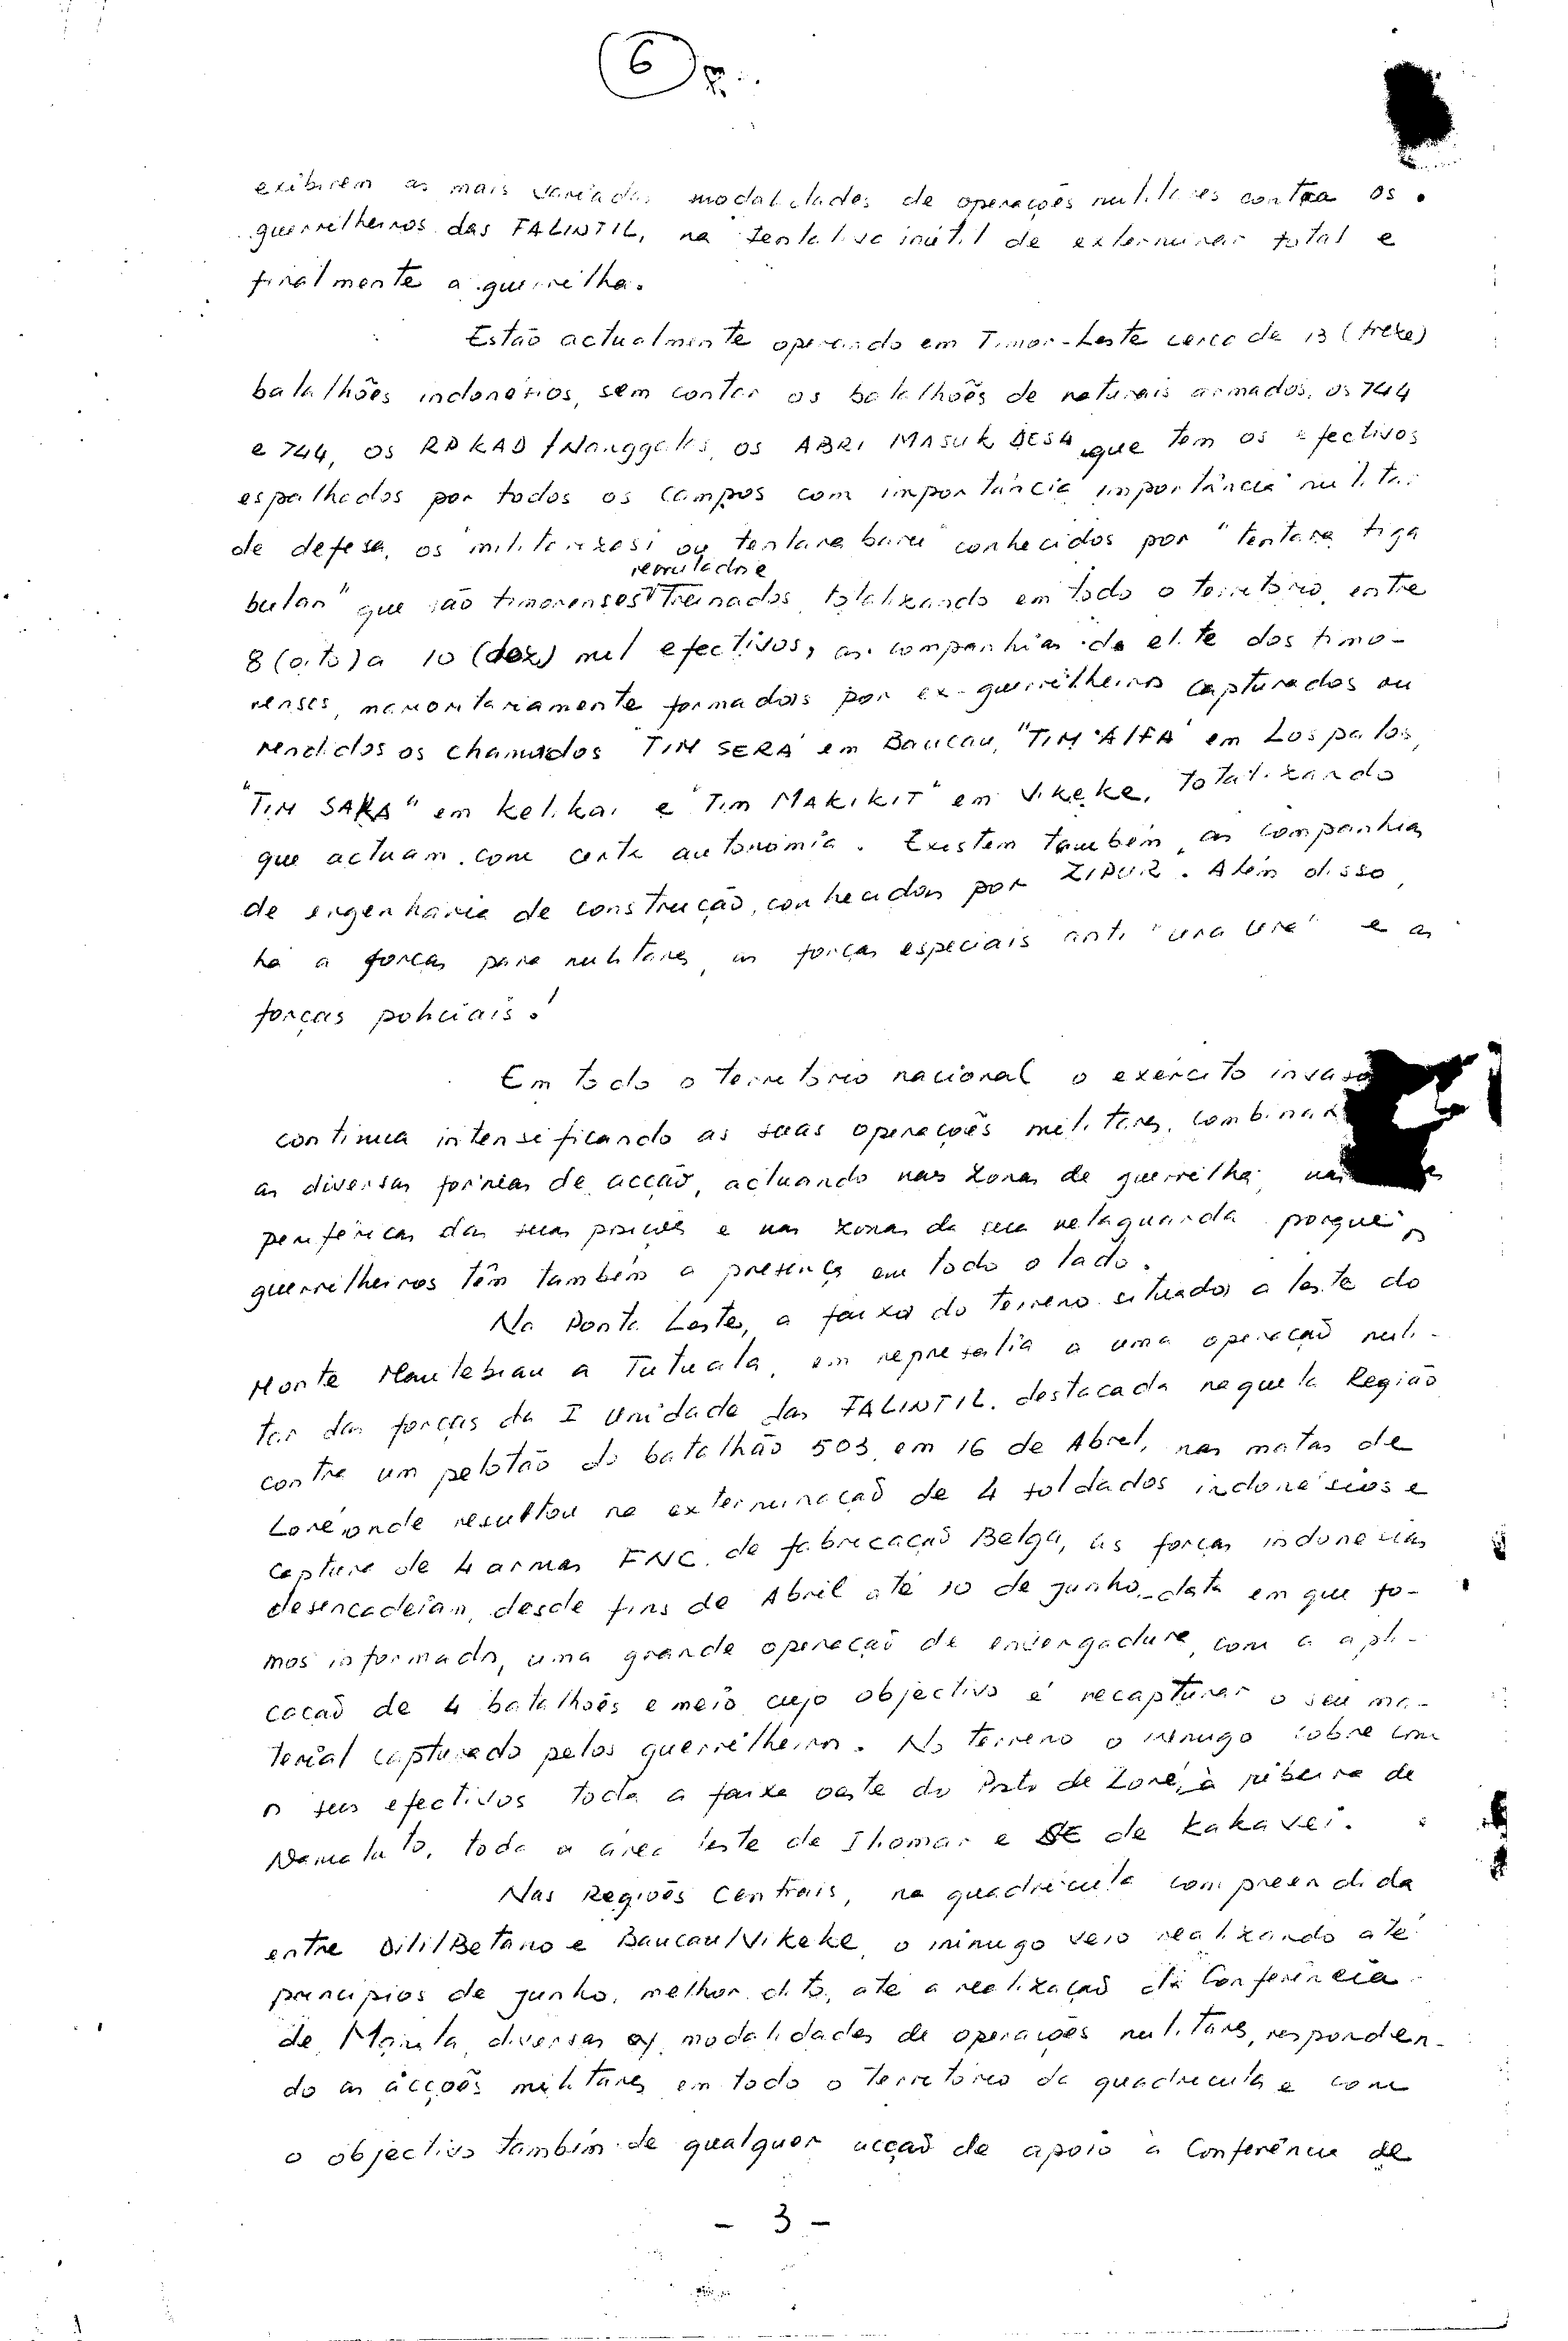 6
exibirem as mais variadas modalidades de operações militares contra os
guerrilheiros das FALINTIL, na tentativa inútil de exterminar total e
finalmente a guerrilha.
Estão actualmente operando em Timor-Leste cerca de 13 (treze)
batalhões indonésios, sem contar os batalhões de naturais armados, os 744
e 744, os RPKAD/Nanggalas, os ABRI MASUK DESA que tem os efectivos
espalhados por todos os campos com importância importância militar
de defesa, os "militarizasi ou tentara baru" conhecidos por "tentara tiga
recrutados e
bulan" que são timorenses treinados, totalizando em todo o território, entre
8 (oito) a 10 (dez) mil efectivos, as companhias de elite dos timo-
renses, maioritariamente formados por ex-guerrilheiros capturados ou
rendidos os chamados "TIM SERA" em Baucau, "TIM ALFA" em Lospalos,
"TIM SAKA" em Kelikai e "Tim MAKIKIT" em Vikeke, totalizando
que actuam com certa autonomia. Existem também, as companhias
de engenharia de construção, conhecidas por ZIPUR. Além disso,
há a forças para militares, as forças especiais anti "ura ura" e as
forças policiais.
Em todo o território nacional o exército invasor
continua intensificando as suas operações militares, combinan
as diversas formas de acção, actuando nas zonas de guerrilha, nas
periféricas das suas posições e nas zonas da sua retaguarda porque os
guerrilheiros têm também a presença em todo o lado.
Na Ponta Leste, a faixa do terreno situados a leste do
Monte Matebian a Tutuala, em represália a uma operação mili-
tar das forças da I Unidade das FALINTIL. destacada naquela Região
contra um pelotão do batalhão 503, em 16 de Abril, nas matas de
Loré, onde resultou na exterminação de 4 soldados indonésios e
captura de 4 armas FNC. de fabricação Belga, as forças indonésias
desencadeiam, desde fins de Abril até 10 de junho-data em que fo-
mos informados, uma grande operação de envergadura, com a apli-
cação de 4 batalhões e meio cujo objectivo é recapturar o seu ma-
terial capturado pelos guerrilheiros. No terreno o inimigo cobre com
os seus efectivos toda a faixa oeste do Posto de Loré, à ribeira de
Namaluto, toda a área leste de Iliomar e SE de Kakavei.
Nas Regiões Centrais, na quadrícula compreendida
entre Dili/Betano e Baucau/Vikeke, o inimigo veio realizando até
princípios de junho, melhor dito, até a realização da Conferência
de Manila, diversas modalidades de operações militares, responden-
do as acções militares em todo o território da quadrícula e com
o objectivo também de qualquer acção de apoio à Conferência de
- 3 -